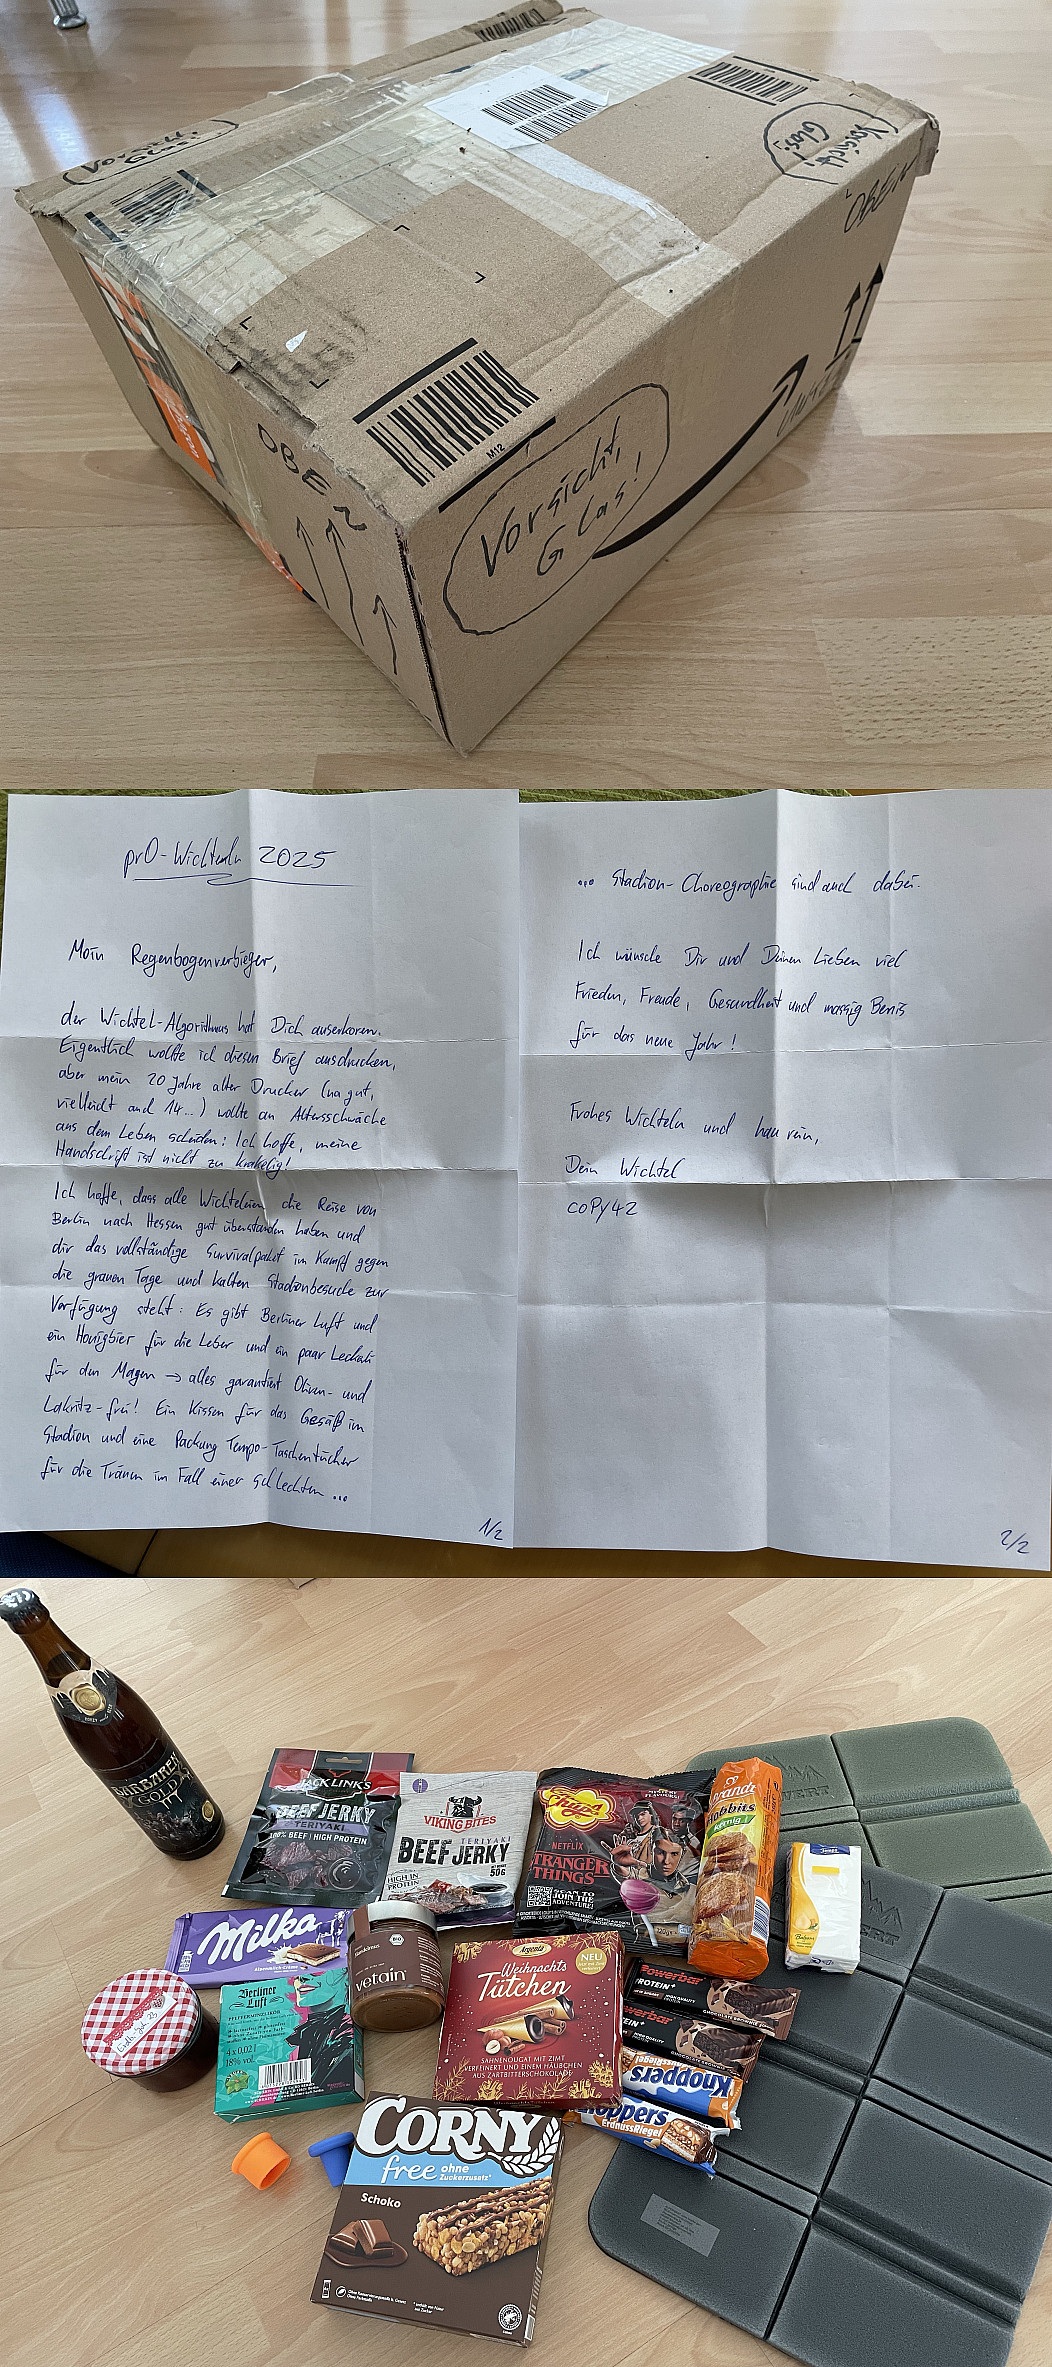 Vorsicht
Glas!
Vorsicht,
Glas!
OBEN
OBEN
M12
Vorsicht,
Glas!
pr0-Wichteln 2025
Moin Regenbogenverbieger,
der Wichtel-Algorithmus hat Dich auserkoren.
Eigentlich wollte ich diesen Brief ausdrucken,
aber mein 20 Jahre alter Drucker (na gut,
vielleicht auch 14...) wollte an Altersschwäche
aus dem Leben scheiden: Ich hoffe, meine
Handschrift ist nicht zu krakelig!
Ich hoffe, dass alle Wichteleien die Reise von
Berlin nach Hessen gut überstanden haben und
dir das vollständige Survivalpaket im Kampf gegen
die grauen Tage und kalten Stadionbesuche zur
Verfügung steht: Es gibt Berliner Luft und
ein Honigbier für die Leber und ein paar Leckerli
für den Magen → alles garantiert Oliven- und
Lakritz-frei! Ein Kissen für das Gesäß im
Stadion und eine Packung Tempo-Taschentücher
für die Tränen im Fall einer schlechten ...
1/2
... Stadion-Choreographie sind auch dabei.
Ich wünsche Dir und Deinen Lieben viel
Frieden, Freude, Gesundheit und massig Benis
für das neue Jahr!
Frohes Wichteln und hau rein,
Dein Wichtel
coPy42
2/2
BARBAREN
GOLD
JACK LINK'S
BEEF JERKY
TERIYAKI
100% BEEF | HIGH PROTEIN
VIKING BITES
TERIYAKI
BEEF JERKY
50G
HIGH IN
PROTEIN
Chupa
NETFLIX
STRANGER
THINGS
SCAN TO
JOIN THE
ADVENTURE!
Brandt
Hobbits
kernig
Tempo
Milka
Alpenmilch-Creme
BIO
vetain
Berliner
Luft
PFEFFERMINZLIKÖR
4 x 0.02 l
18% vol.
Argenta
NEU
Weihnachts
Tütchen
SAHNENOUGAT MIT ZIMT
VERFEINERT UND EINEM HÄUBCHEN
AUS ZARTBITTERSCHOKOLADE
Powerbar
PROTEIN+
HIGH QUALITY
PROTEIN
CHOCOLATE BROWNIE
Powerbar
HIGH QUALITY
PROTEIN
CHOCOLATE BROWNIE
Knoppers
ErdnussRiegel
Knoppers
ErdnussRiegel
CORNY
free ohne
Zuckerzusatz*
Schoko